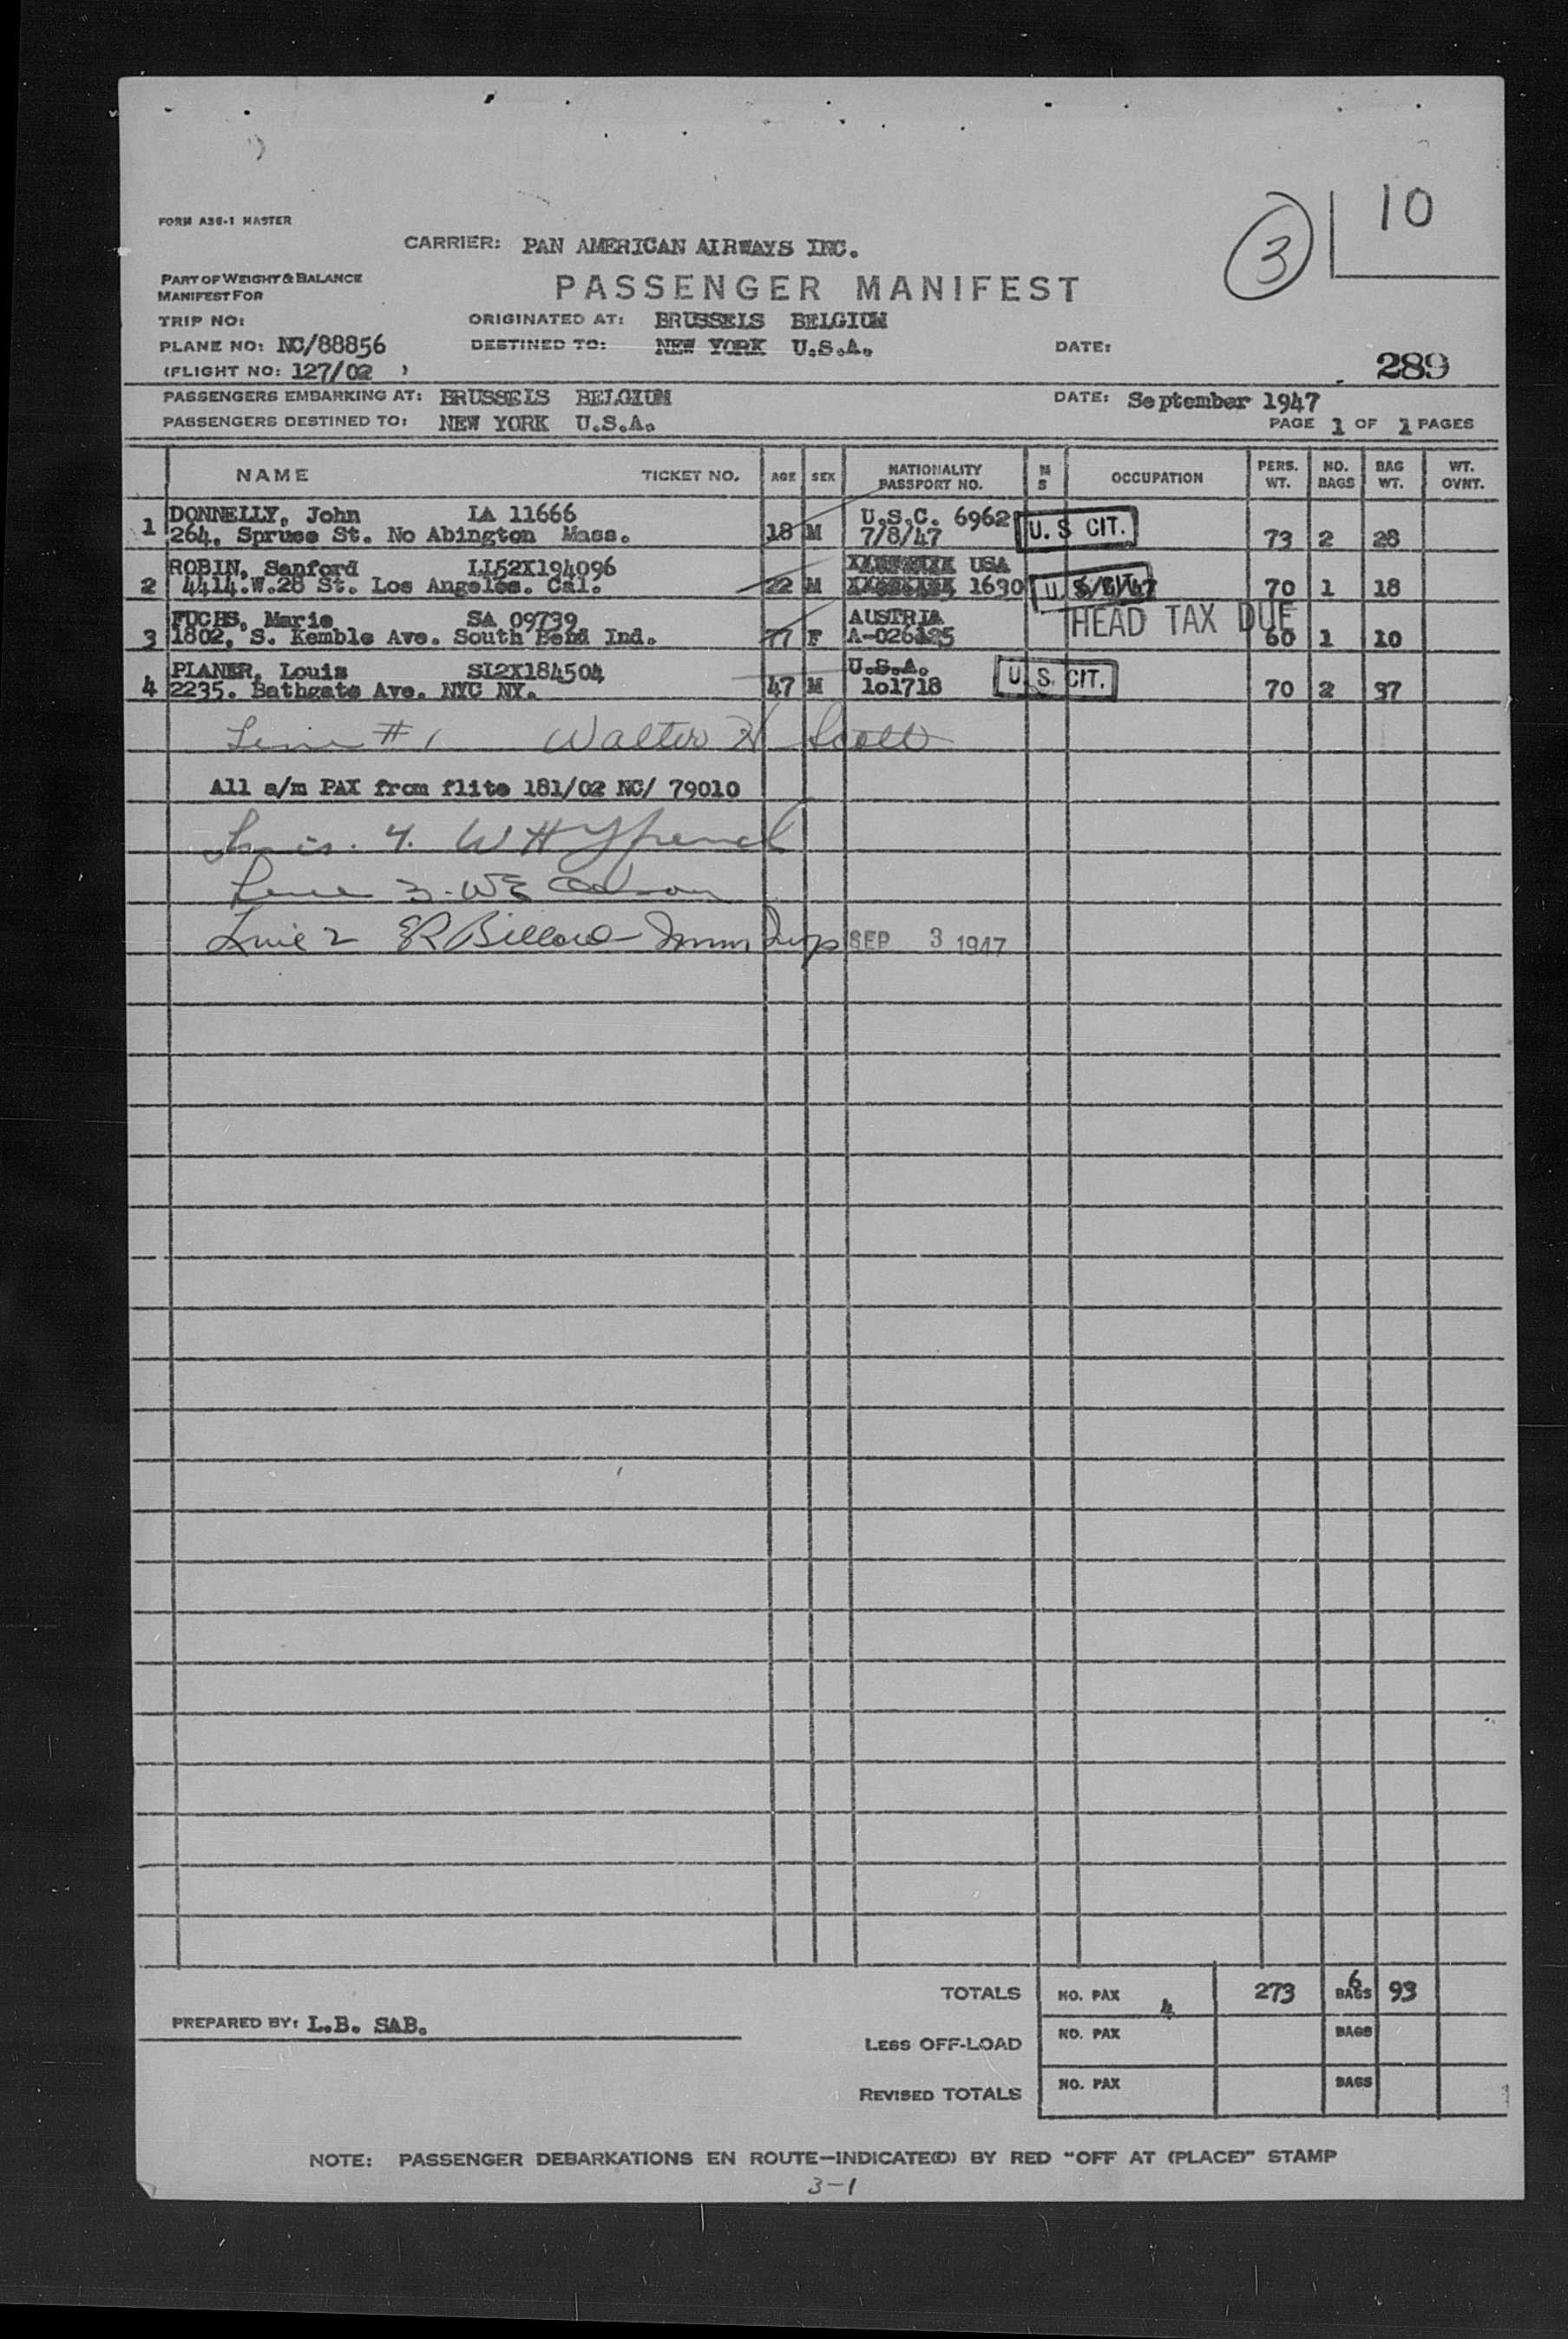 10
3
FORM A36-1 MASTER
CARRIER: PAN AMERICAN AIRWAYS INC.
PART OF WEIGHT & BALANCE
MANIFEST FOR
PASSENGER MANIFEST
TRIP NO:
ORIGINATED AT: BRUSSELS BELGIUM
PLANE NO: NC/88856
DESTINED TO: NEW YORK U.S.A.
DATE:
(FLIGHT NO: 127/02 )
289
PASSENGERS EMBARKING AT: BRUSSELS BELGIUM
DATE: September 1947
PASSENGERS DESTINED TO: NEW YORK U.S.A.
PAGE 1 OF 1 PAGES
NAME TICKET NO. AGE SEX NATIONALITY PASSPORT NO. M S OCCUPATION PERS. WT. NO. BAGS BAG WT. WT. OVNT.
DONNELLY, John IA 11666 U.S.C. 6962 U.S CIT.
1 264. Spruce St. No Abington Mass. 18 M 7/8/47 73 2 28
ROBIN, Sanford LL52X194096 USA
2 4414.W.28 St. Los Angeles. Cal. 22 M 1690 70 1 18
FUCHS, Marie SA 09739 AUSTRIA HEAD TAX DUE
3 1802, S. Kemble Ave. South Bend Ind. 77 F 60 1 10
PLANER, Louis SI2X184504 U.S.A. U.S. CIT.
4 2235. Bathgate Ave. NYC NY. 47 M 101718 70 2 37
Line #1 Walter H Scott
All a/m PAX from flite 181/02 NC/ 79010
4. W H
Line 3. W E
Line 2 Immn Insp SEP 3 1947
TOTALS NO. PAX 4 273 6 BAGS 93
PREPARED BY: L.B. SAB.
LESS OFF-LOAD NO. PAX BAGS
REVISED TOTALS NO. PAX BAGS
NOTE: PASSENGER DEBARKATIONS EN ROUTE—INDICATE(D) BY RED "OFF AT (PLACE)" STAMP
3-1